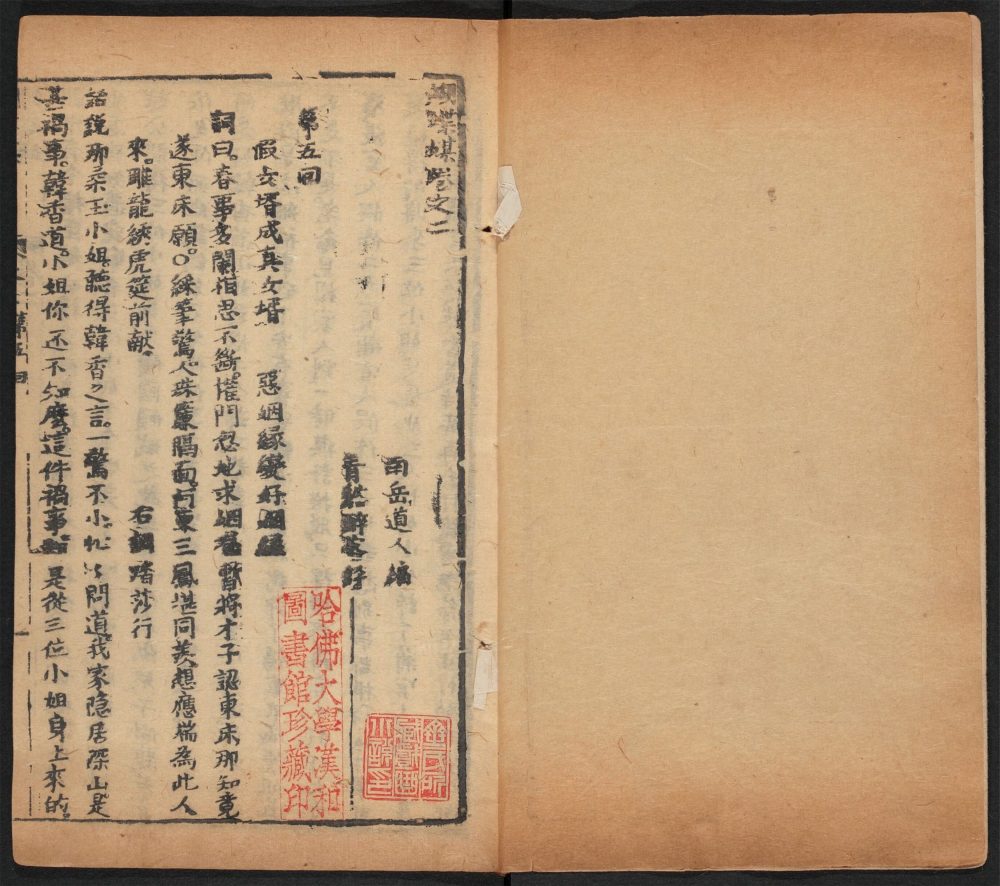 蝴蝶媒卷之二
南岳道人編
青谿醉客評
第五回
假女壻成真女壻 惡姻緣變好姻緣
詞曰。春事多闌指思不斷。權門忽地求姻眷暫將才子認東床那知竟
遂東床願。〇綵筆驚人珠簾隔面河東三鳳堪同羡想應端為此人
來。雕龍綉虎筵前献。 右調踏莎行
話說那柔玉小姐。聽得韓香之言。一驚不小。忙問道。我家隐居深山是
甚禍事。韓香道。小姐你还不知麼。這件禍事是從三位小姐身上來的。
第五回
哈佛大學漢和
圖書館珍藏印